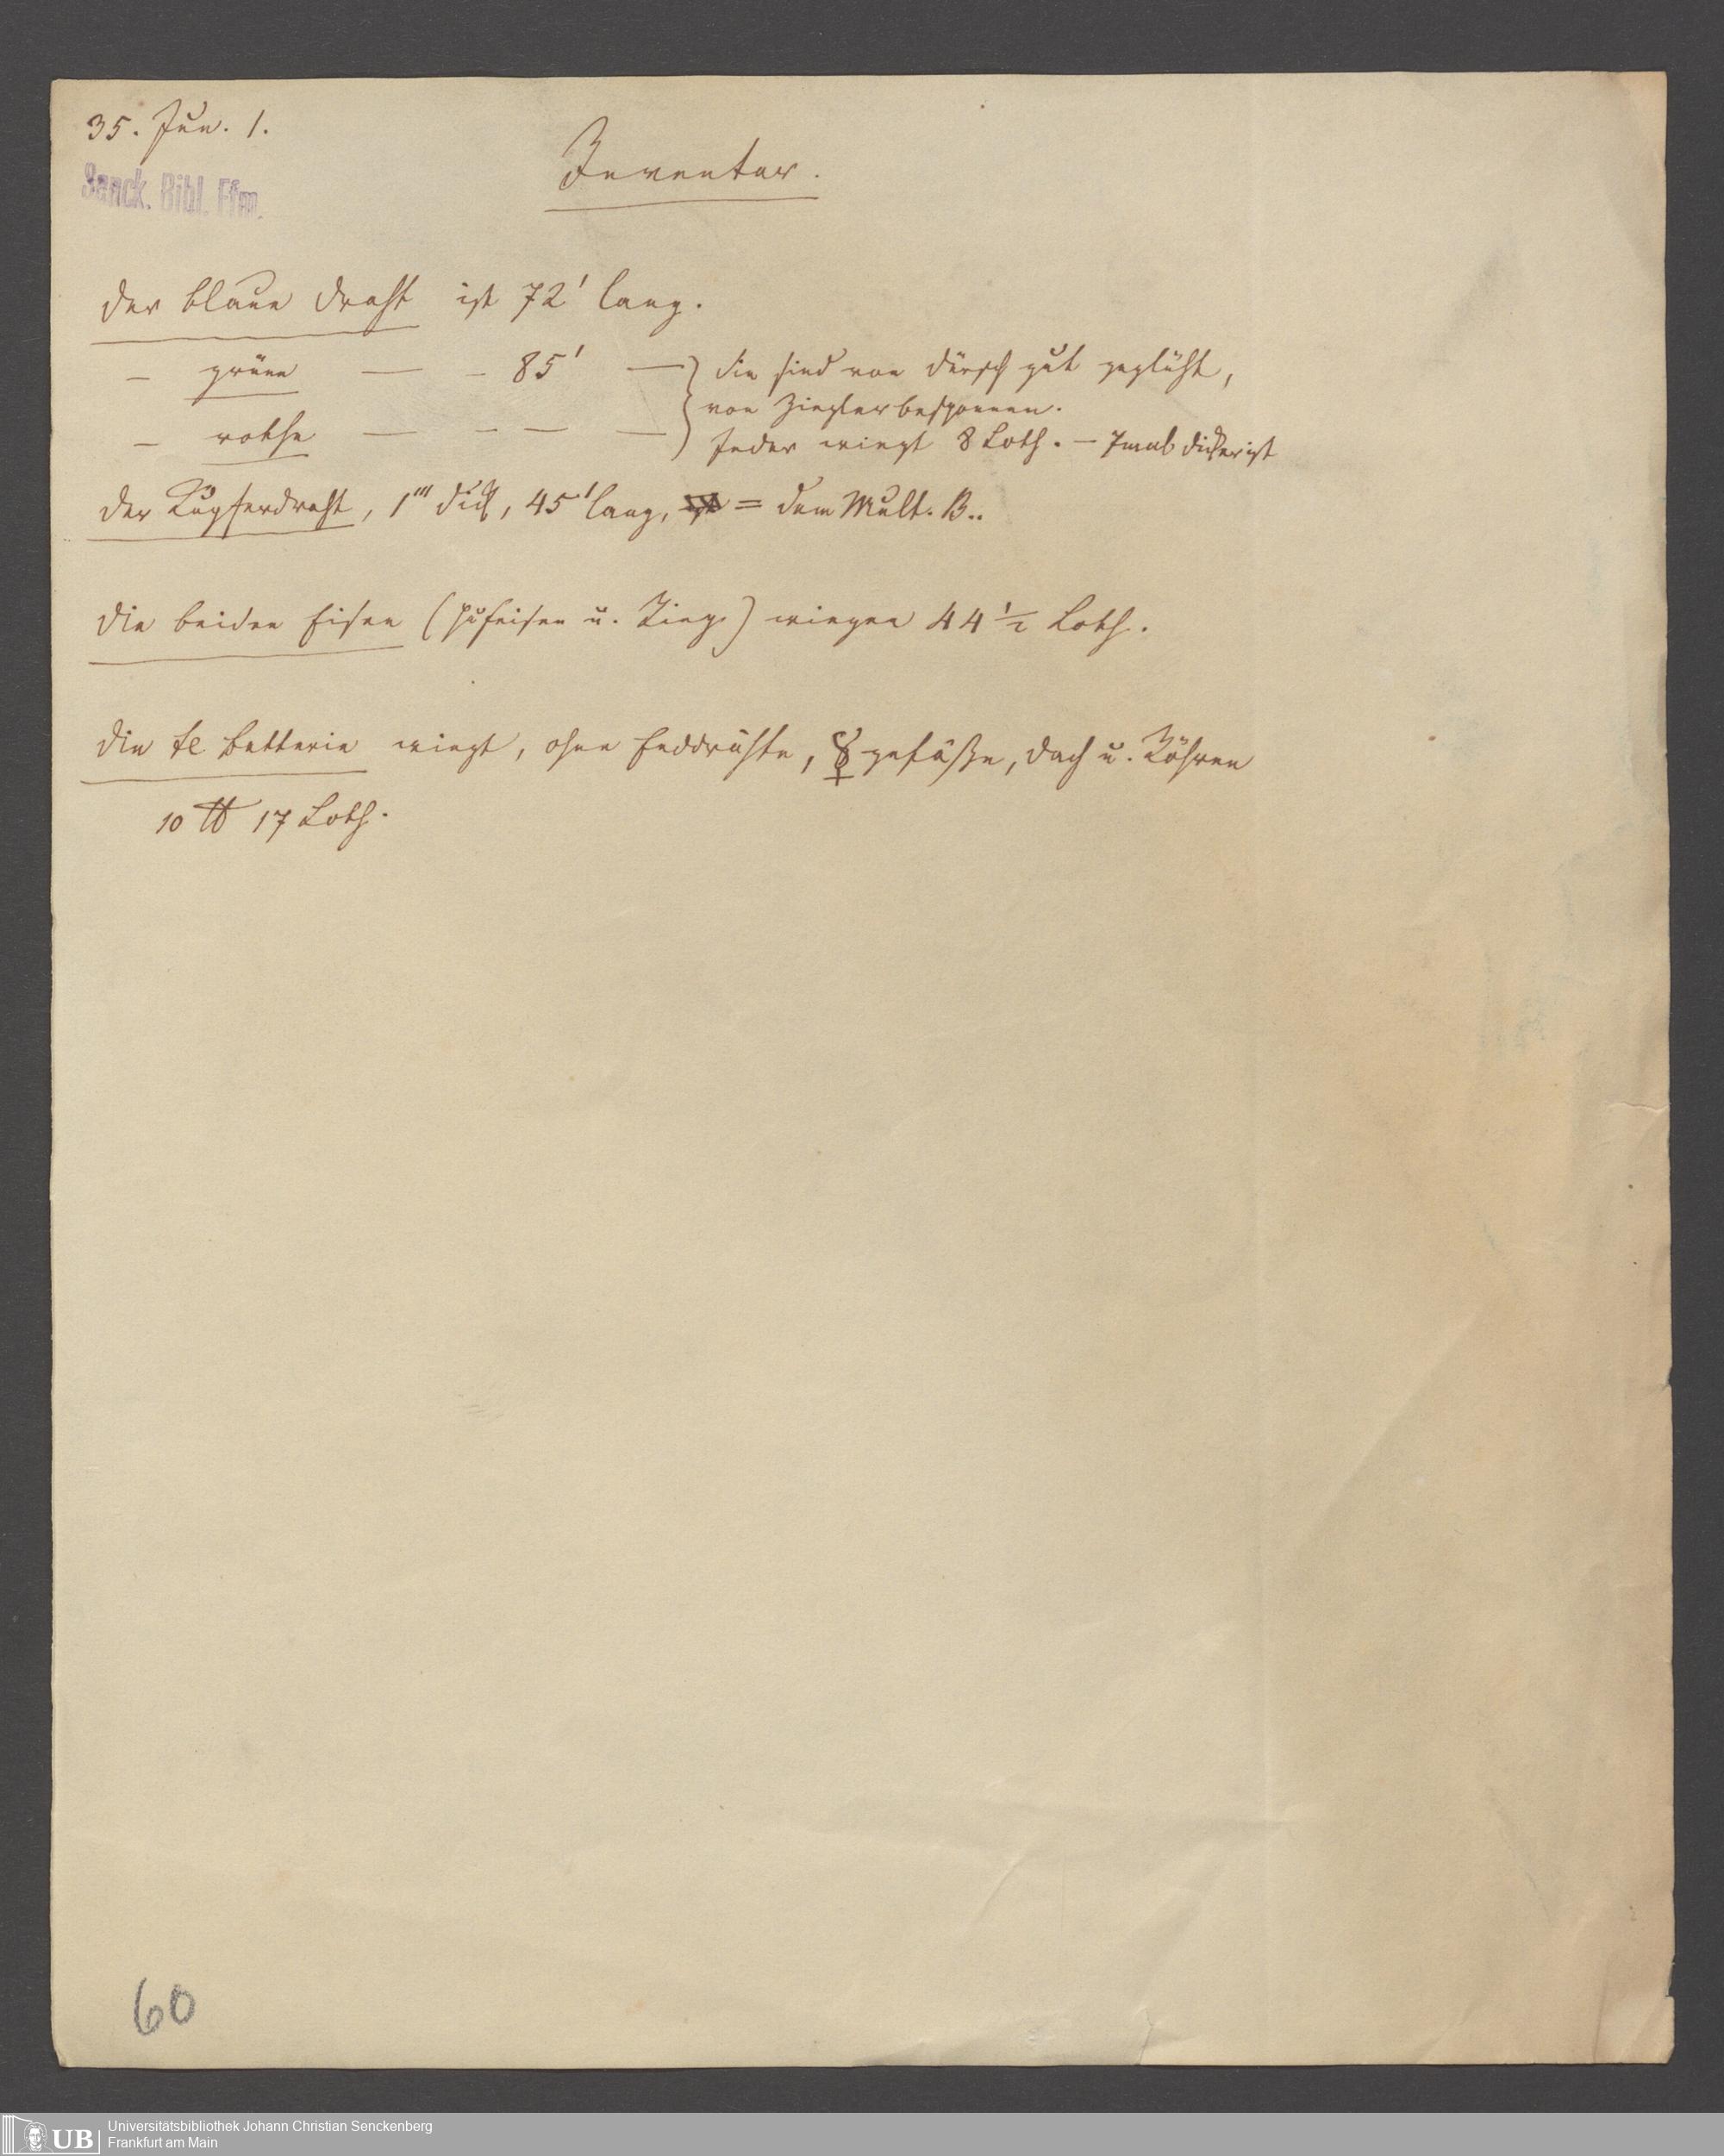 35. Jun. 1.
Senck. Bibl. Ffm.
Inventar.
Der blaue Draht ist 72' lang.
— grüne — — 85' — } Sie sind von Dürsch gut geglüht,
von Ziegler besponnen.
— rothe — — — — Jeder wiegt 8 Loth. — 7mal dicker ist
der Kupferdraht, 1''' dick, 45' lang, = dem Mult. B..
Die beiden Eisen (Hufeisen u. Ring) wiegen 44 1/2 Loth.
Die Batterie wiegt, ohne Enddrähte, ☿gefäße, Dach u. Röhren
10 ℔ 17 Loth.
60
UB Universitätsbibliothek Johann Christian Senckenberg
Frankfurt am Main